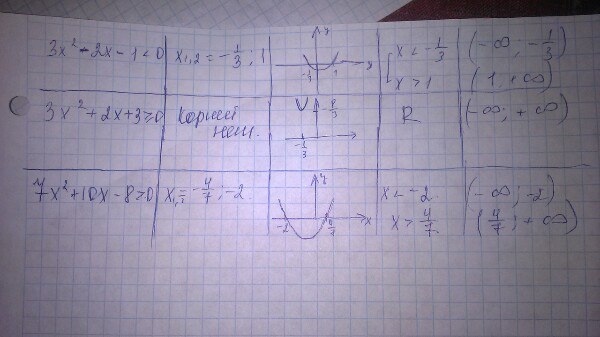 3x² - 2x - 1 < 0 x₁,₂ = -1/3 ; 1 y x -1/3 1 [ x < -1/3 (-∞; -1/3)
x > 1 (1, +∞)
3x² + 2x + 3 ≥ 0 Корней нет. 8/3 -1/3 R (-∞; +∞)
7x² + 10x - 8 > 0 x₁,₂ = -4/7 ; -2 y x -2 4/7 x < -2 (-∞; -2)
x > 4/7 (4/7; +∞)